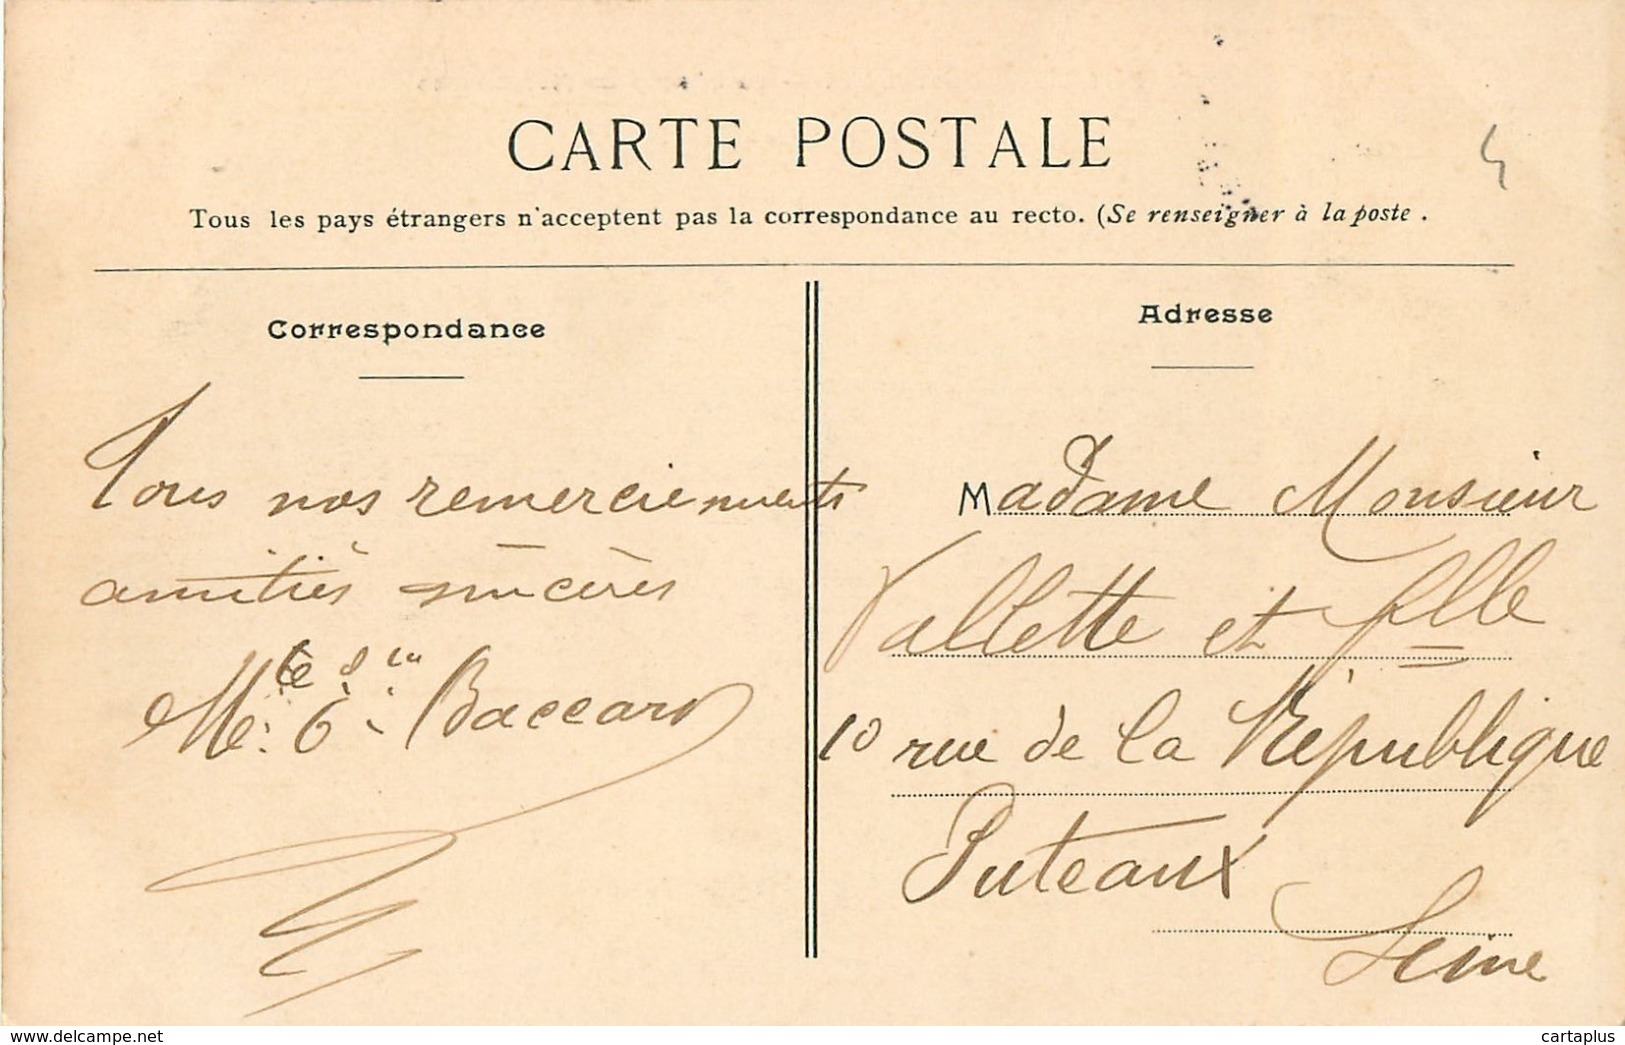 CARTE POSTALE
Tous les pays étrangers n'acceptent pas la correspondance au recto. (Se renseigner à la poste .
Correspondance
Tous nos remerciements
amitiés sincères
Baccard
Adresse
Madame Monsieur
Vallette et fille
10 rue de la République
Puteaux
Seine
www.delcampe.net
cartaplus